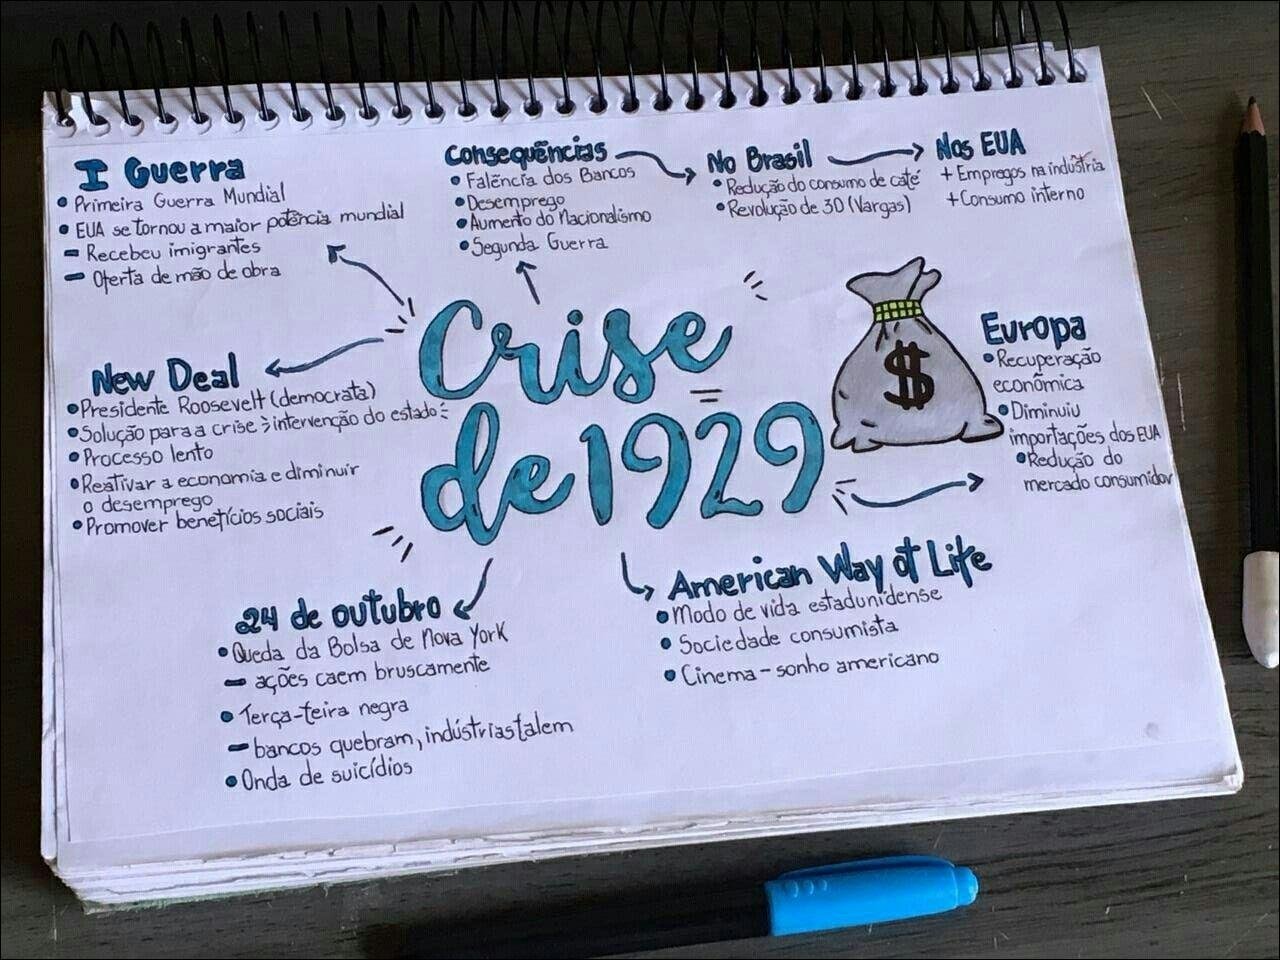 I Guerra
• Primeira Guerra Mundial
• EUA se tornou a maior potência mundial
- Recebeu imigrantes
- Oferta de mão de obra
Consequências
• Falência dos Bancos
• Desemprego
• Aumento do Nacionalismo
• Segunda Guerra
No Brasil
• Redução do consumo de café
• Revolução de 30 (Vargas)
Nos EUA
+ Empregos na indústria
+ Consumo interno
Crise
de 1929
$
New Deal
• Presidente Roosevelt (democrata)
• Solução para a crise > intervenção do estado
• Processo lento
• Reativar a economia e diminuir
o desemprego
• Promover benefícios sociais
Europa
• Recuperação
econômica
• Diminuiu
importações dos EUA
• Redução do
mercado consumidor
24 de outubro
• Queda da Bolsa de Nova York
- ações caem bruscamente
• Terça-feira negra
- bancos quebram, indústrias falem
• Onda de suicídios
American Way of Life
• Modo de vida estadunidense
• Sociedade consumista
• Cinema - sonho americano